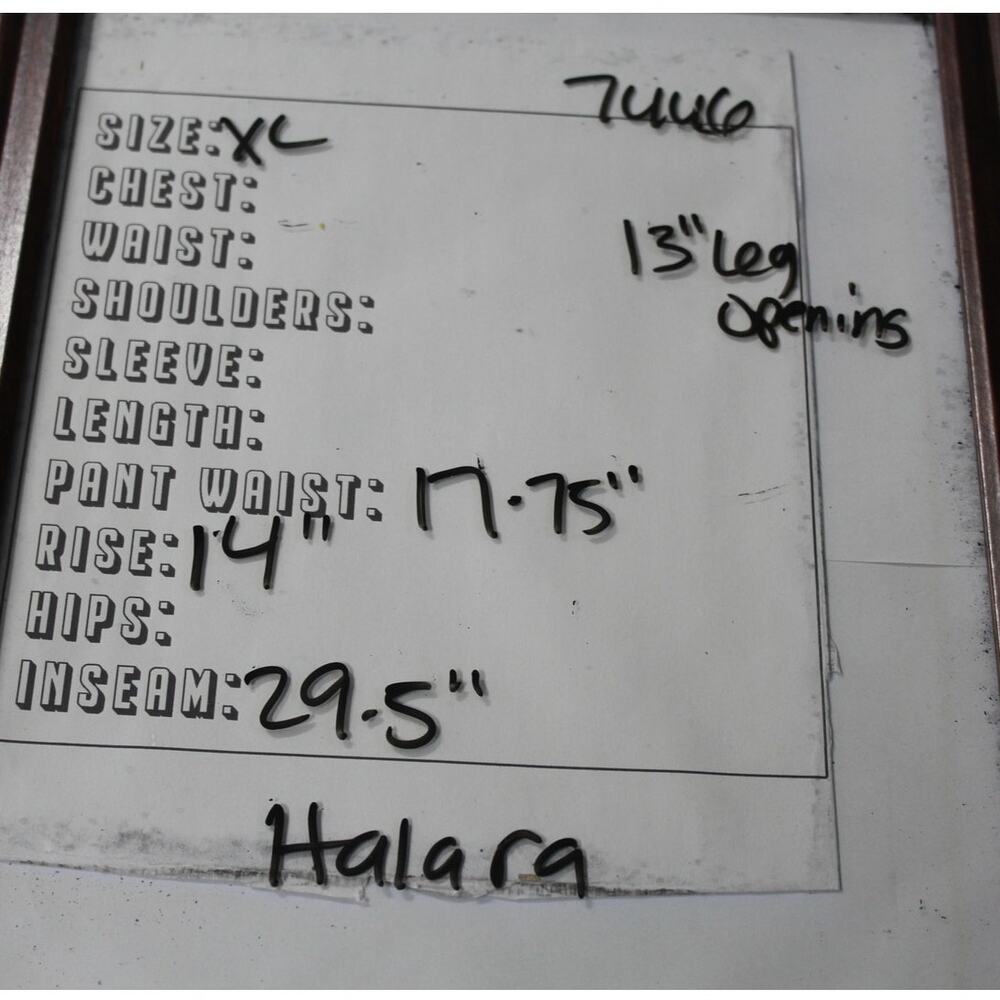 7446
SIZE: XL
CHEST:
WAIST:
13" Leg
opening
SHOULDERS:
SLEEVE:
LENGTH:
PANT WAIST: 17.75"
RISE: 14"
HIPS:
INSEAM: 29.5"
Halara